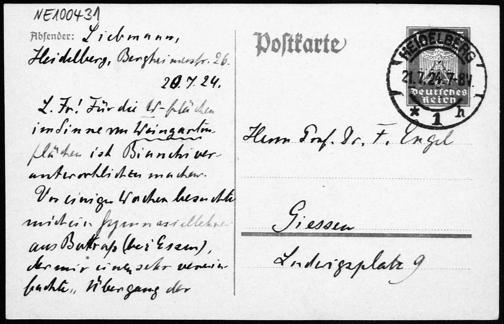 NE100431
Absender: Liebmann,
Heidelberg, Bergheimerstr. 26.
20.7.24.
L. Fr! Für die W-flächen
im Sinne von Weingarten-
flächen ist Bianchi ver-
antwortlich zu machen.
Vor einigen Wochen besuchte
mich ein Gymnasiallehrer
aus Bottrop (bei Essen),
der mir einen sehr verein-
fachten Übergang der
Postkarte
HEIDELBERG
21.7.24. 7-8V.
* 1 h
Deutsches
Reich
Herrn Prof. Dr. F. Engel
Giessen
Ludwigsplatz 9